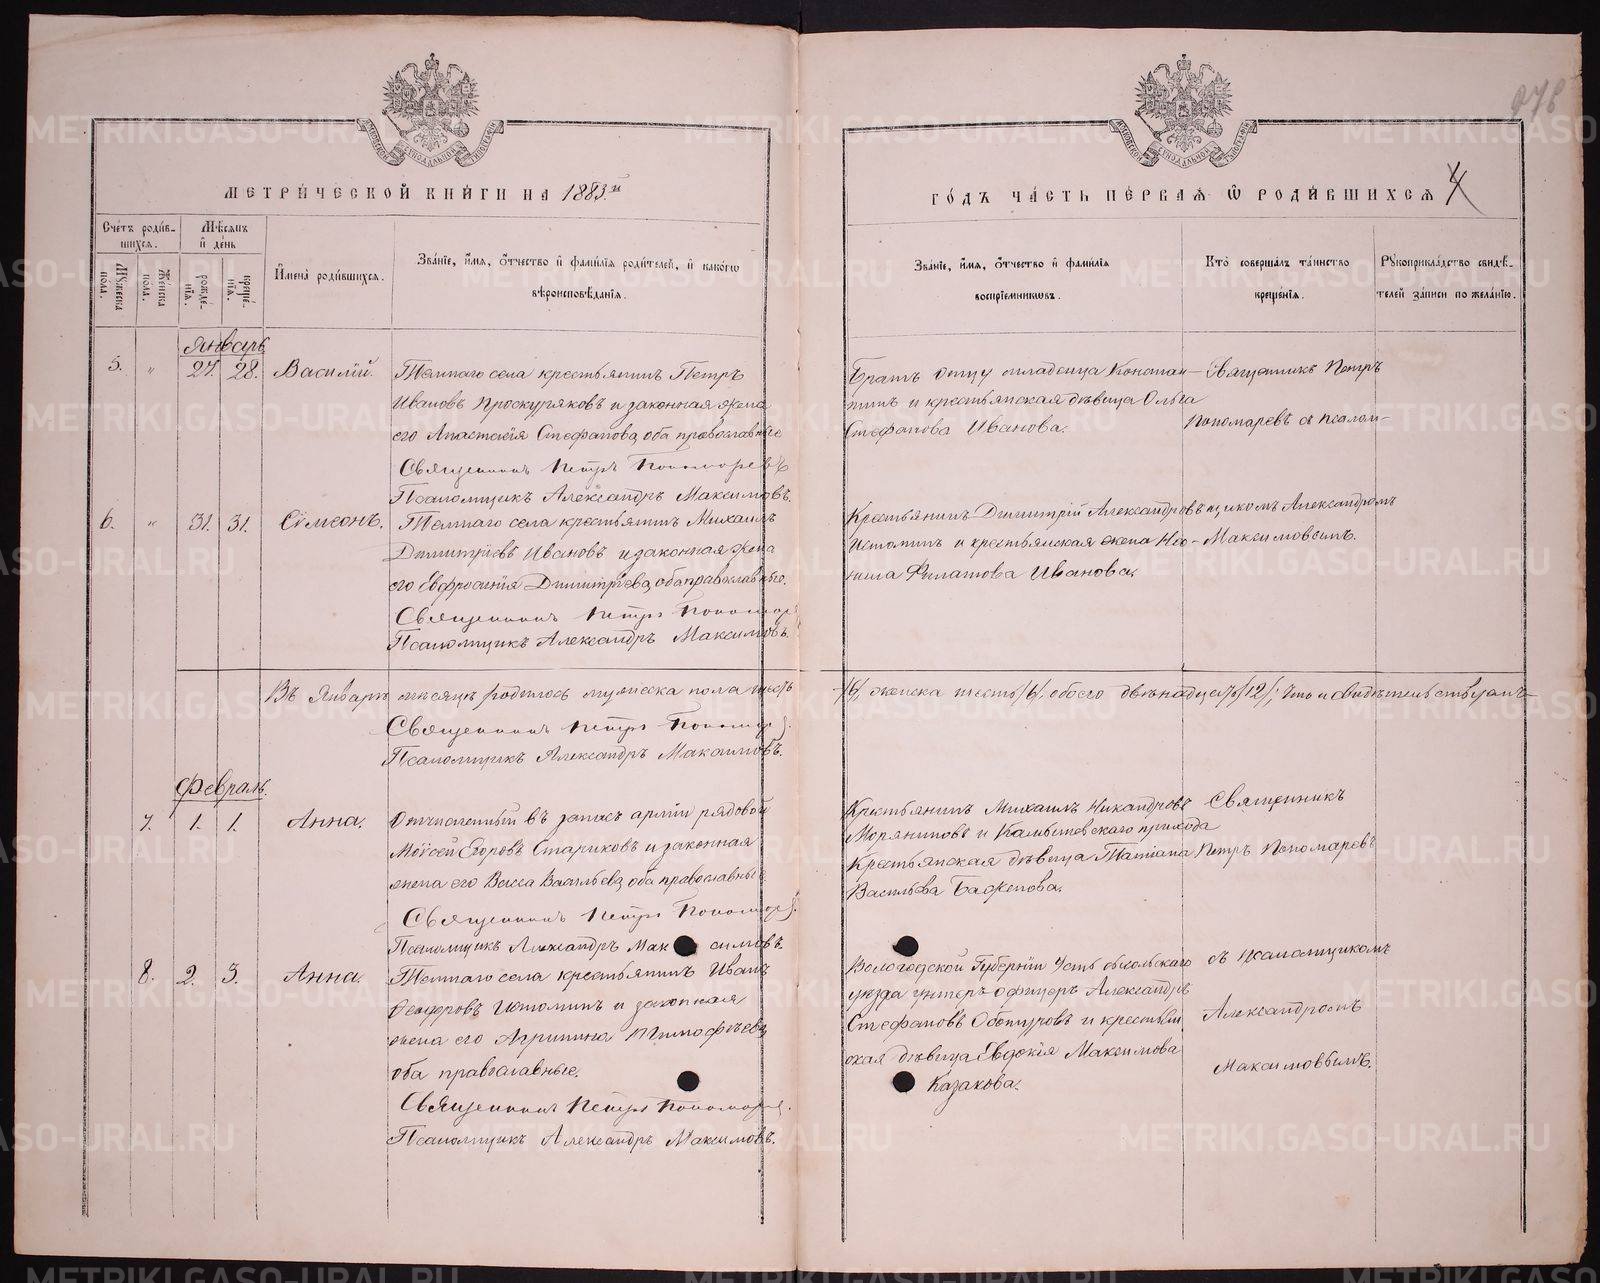 МЕТРИЧЕСКОЙ КНИГИ НА 1883й
Счетъ родившихся.
Мѣсяцъ и день
Имена родившихся.
Званіе, имя, отчество и фамилія родителей, и какого
вѣроисповѣданія.
Мужеска пола.
Женска пола.
рожденія.
крещенія.
Январь
5. „ 27. 28. Василій.
Темнаго села крестьянинъ Петръ
Ивановъ Проскуряковъ и законная жена
его Анастасія Стефанова, оба православные
Священникъ Петръ Пономаревъ
Псаломщикъ Александръ Максимовъ.
6. „ 31. 31. Сѷмеонъ.
Темнаго села крестьянинъ Михаилъ
Димитріевъ Ивановъ и законная жена
его Евфросинія Димитріева, оба православные.
Священникъ Петръ Пономар
Псаломщикъ Александръ Максимовъ.
Въ Январѣ мѣсяцѣ родилось мужеска пола шесть
Священникъ Петръ Пономар
Псаломщикъ Александръ Максимовъ.
Февраль.
7. 1. 1. Анна.
Отчисленный въ запасъ арміи рядовой
Моѷсей Егоровъ Стариковъ и законная
жена его Васса Васильева, оба православные
Священникъ Петръ Пономар
Псаломщикъ Александръ Максимовъ.
8. 2. 3. Анна.
Темнаго села крестьянинъ Иванъ
Ѳеодоровъ Истоминъ и законная
жена его Агрипина Тимофѣева
оба православные.
Священникъ Петръ Пономар
Псаломщикъ Александръ Максимовъ.
278
ГОДЪ ЧАСТЬ ПЕРВАЯ Ѿ РОДИВШИХСЯ
4
Званіе, имя, отчество и фамилія
воспріемниковъ.
Кто совершалъ таинство
крещенія.
Рукоприкладство свидѣтелей записи по желанію.
Братъ отцу младенца Констан-
тинъ и крестьянская дѣвица Ольга
Стефанова Иванова.
Священникъ Петръ
Пономаревъ съ псалом-
Крестьянинъ Димитрій Александровъ
Истоминъ и крестьянская жена Нео-
нила Филатова Иванова.
щикомъ Александромъ
Максимовымъ.
/6/, женска шесть /6/, обоего двѣнадцать /12/; Что и свидѣтельствуемъ
Крестьянинъ Михаилъ Никандровъ
Моряниновъ и Камышевскаго прихода
Крестьянская дѣвица Татіана
Васильева Баженова.
Священникъ
Петръ Пономаревъ
Вологодской Губерніи Устьсысольскаго
уѣзда унтеръ-офицеръ Александръ
Стефановъ и крестьян
ская дѣвица Евдокія Максимова
Казакова.
съ псаломщикомъ
Александромъ
Максимовымъ.
METRIKI.GASO-URAL.RU